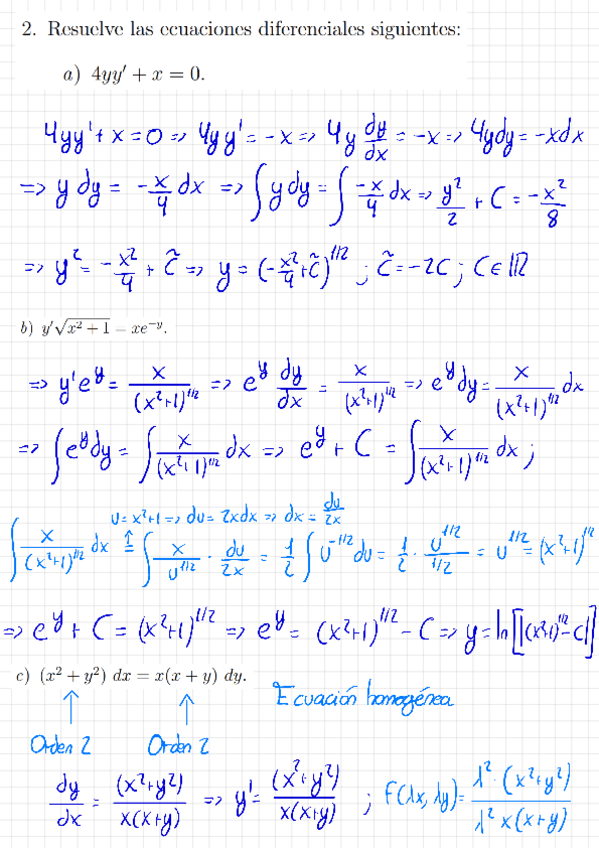 2. Resuelve las ecuaciones diferenciales siguientes:
a) 4yy' + x = 0.
4yy' + x = 0 => 4yy' = -x => 4y dy/dx = -x => 4ydy = -xdx
=> y dy = -x/4 dx => ∫ y dy = ∫ -x/4 dx => y²/2 + C = -x²/8
=> y² = -x²/4 + C̃ => y = (-x²/4 + C̃)^1/2 ; C̃ = -2C ; C ∈ ℝ
b) y'√(x² + 1) = xe^(-y).
=> y'e^y = x/(x²+1)^1/2 => e^y dy/dx = x/(x²+1)^1/2 => e^y dy = x/(x²+1)^1/2 dx
=> ∫ e^y dy = ∫ x/(x²+1)^1/2 dx => e^y + C = ∫ x/(x²+1)^1/2 dx ;
U = x²+1 => du = 2xdx => dx = du/2x
∫ x/(x²+1)^1/2 dx ↑= ∫ x/U^1/2 · du/2x = 1/2 ∫ U^-1/2 du = 1/2 · U^1/2/1/2 = U^1/2 = (x²+1)^1/2
=> e^y + C = (x²+1)^1/2 => e^y = (x²+1)^1/2 - C => y = ln[|(x²+1)^1/2 - C|]
c) (x² + y²) dx = x(x + y) dy.
Ecuación homogénea
↑ ↑
Orden 2 Orden 2
dy/dx = (x²+y²)/x(x+y) => y' = (x²+y²)/x(x+y) ; f(λx, λy) = λ² · (x²+y²)/λ² x(x+y)